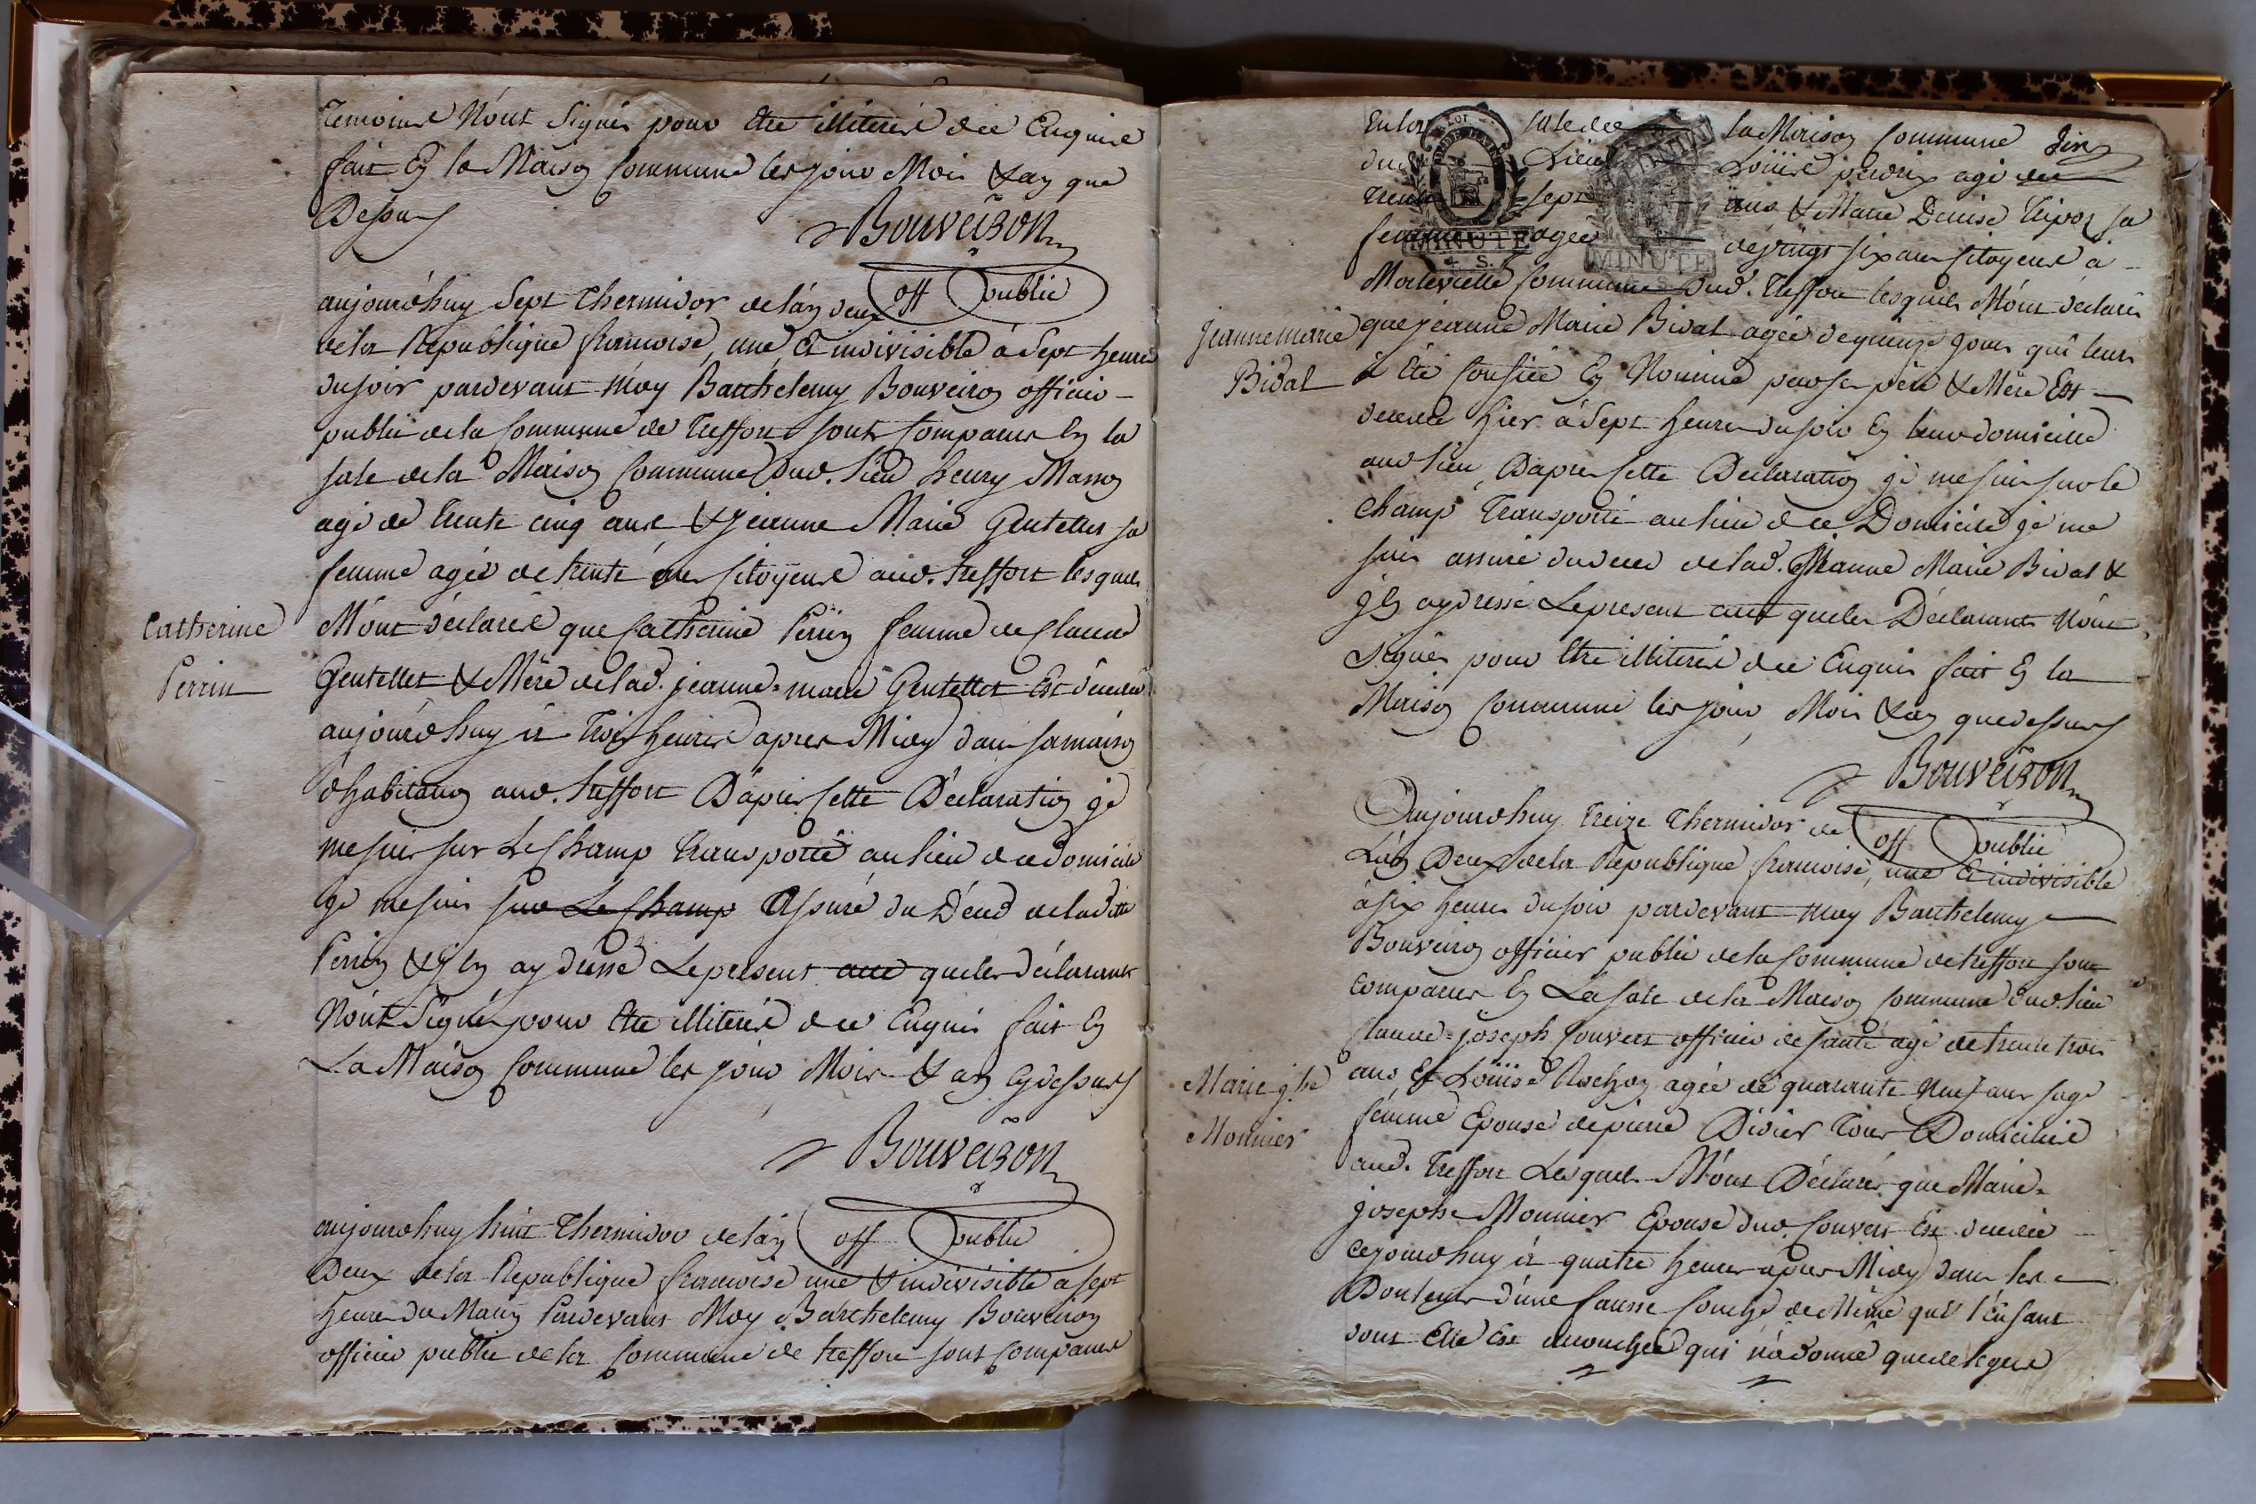 temoins N'ont Signés pour être illiterés de ce Enquis
fait En la Maison Commune les jour Mois & an que
Dessus
Bouveiron
off public
aujourdhuy Sept Thermidor de lan deux
de la Republique francoise, une & indivisible à Sept heures
du soir pardevant Moy Barthelemy Bouveiron officier
public de la Commune de Treffort sont comparus En la
sale de la Maison Commune dud. lieu henry Masson
agé de trente cinq ans & jeanne Marie Gentellet sa
femme agée de trente ans Citoyens aud. treffort lesquels
M'ont déclarés que Catherine Perrin femme de Claude
Gentellet & Mère de lad. jeanne-marie Gentellet Est décedée
aujourdhuy à Trois heures apres Midy dans sa maison
d'habitation aud. treffort D'après cette Déclaration je
me suis sur Le Champ Transporté au lieu de ce domicile
je me suis sur Le Champ Assuré du Décés de ladite
Perrin & j'En ay dressé Le present acte que les déclarants
N'ont Signé pour être illiterés de ce Enquis fait En
La Maison Commune les jour Mois & an Cy dessus
Bouveiron
off public
Catherine
Perrin
aujourdhuy huit Thermidor de lan
Deux de la Republique francoise une & indivisible a sept
heures du Matin Pardevant Moy Barthelemy Bouveiron
officier public de la Commune de treffort sont comparus
En la sale de la Maison Commune
du Lieu Louis perdrix agé de
trente sept ans & Marie Denise Tripoz sa
femme agée de vingt six ans Citoyens à
Commune dud. Treffort lesquels M'ont déclarés
que jeanne Marie Bidal agée de quinze jours qui leurs
à été Confiée En Nourrice par ses père & Mère Est
décedée hier à Sept heures du soir En leur domicile
aud lieu, D'apres Cette Declaration je me suis sur le
Champ Transporté au lieu de ce Domicile je me
suis assuré du déces de lad. Jeanne Marie Bidal &
j'En ay dressé Le present acte que les Déclarants N'ont
Signés pour être illiterés de ce Enquis fait En la
Maison Commune les jour Mois & an que dessus
Bouveiron
off public
Jeanne marie
Bidal
Aujourdhuy treize Thermidor de
L'an Deux de la Republique francoise, une & indivisible
à six heures du soir pardevant Moy Barthelemy
Bouveiron officier public de la Commune de treffort sont
comparus En La sale de la Maison Commune dud. lieu
Claude-joseph Couvert officier de santé agé de trente trois
ans & Louïse Rochon agée de quarante Neuf ans sage
femme Epouse de pierre Didier Tous Domiciliés
aud. Treffort Lesquels M'ont Déclarés que Marie-
josephe Monnier Epouse dud. Couvert Est décedée
cejourdhuy à quatre heures apres Midy dans les
Douleurs d'une fausse Couche de Même que l'enfant
dont Elle Est accouchée qui n'a donné que de legers
Marie jhe
Monnier
LA LOI
MINUTE
4 S.
MINUTE